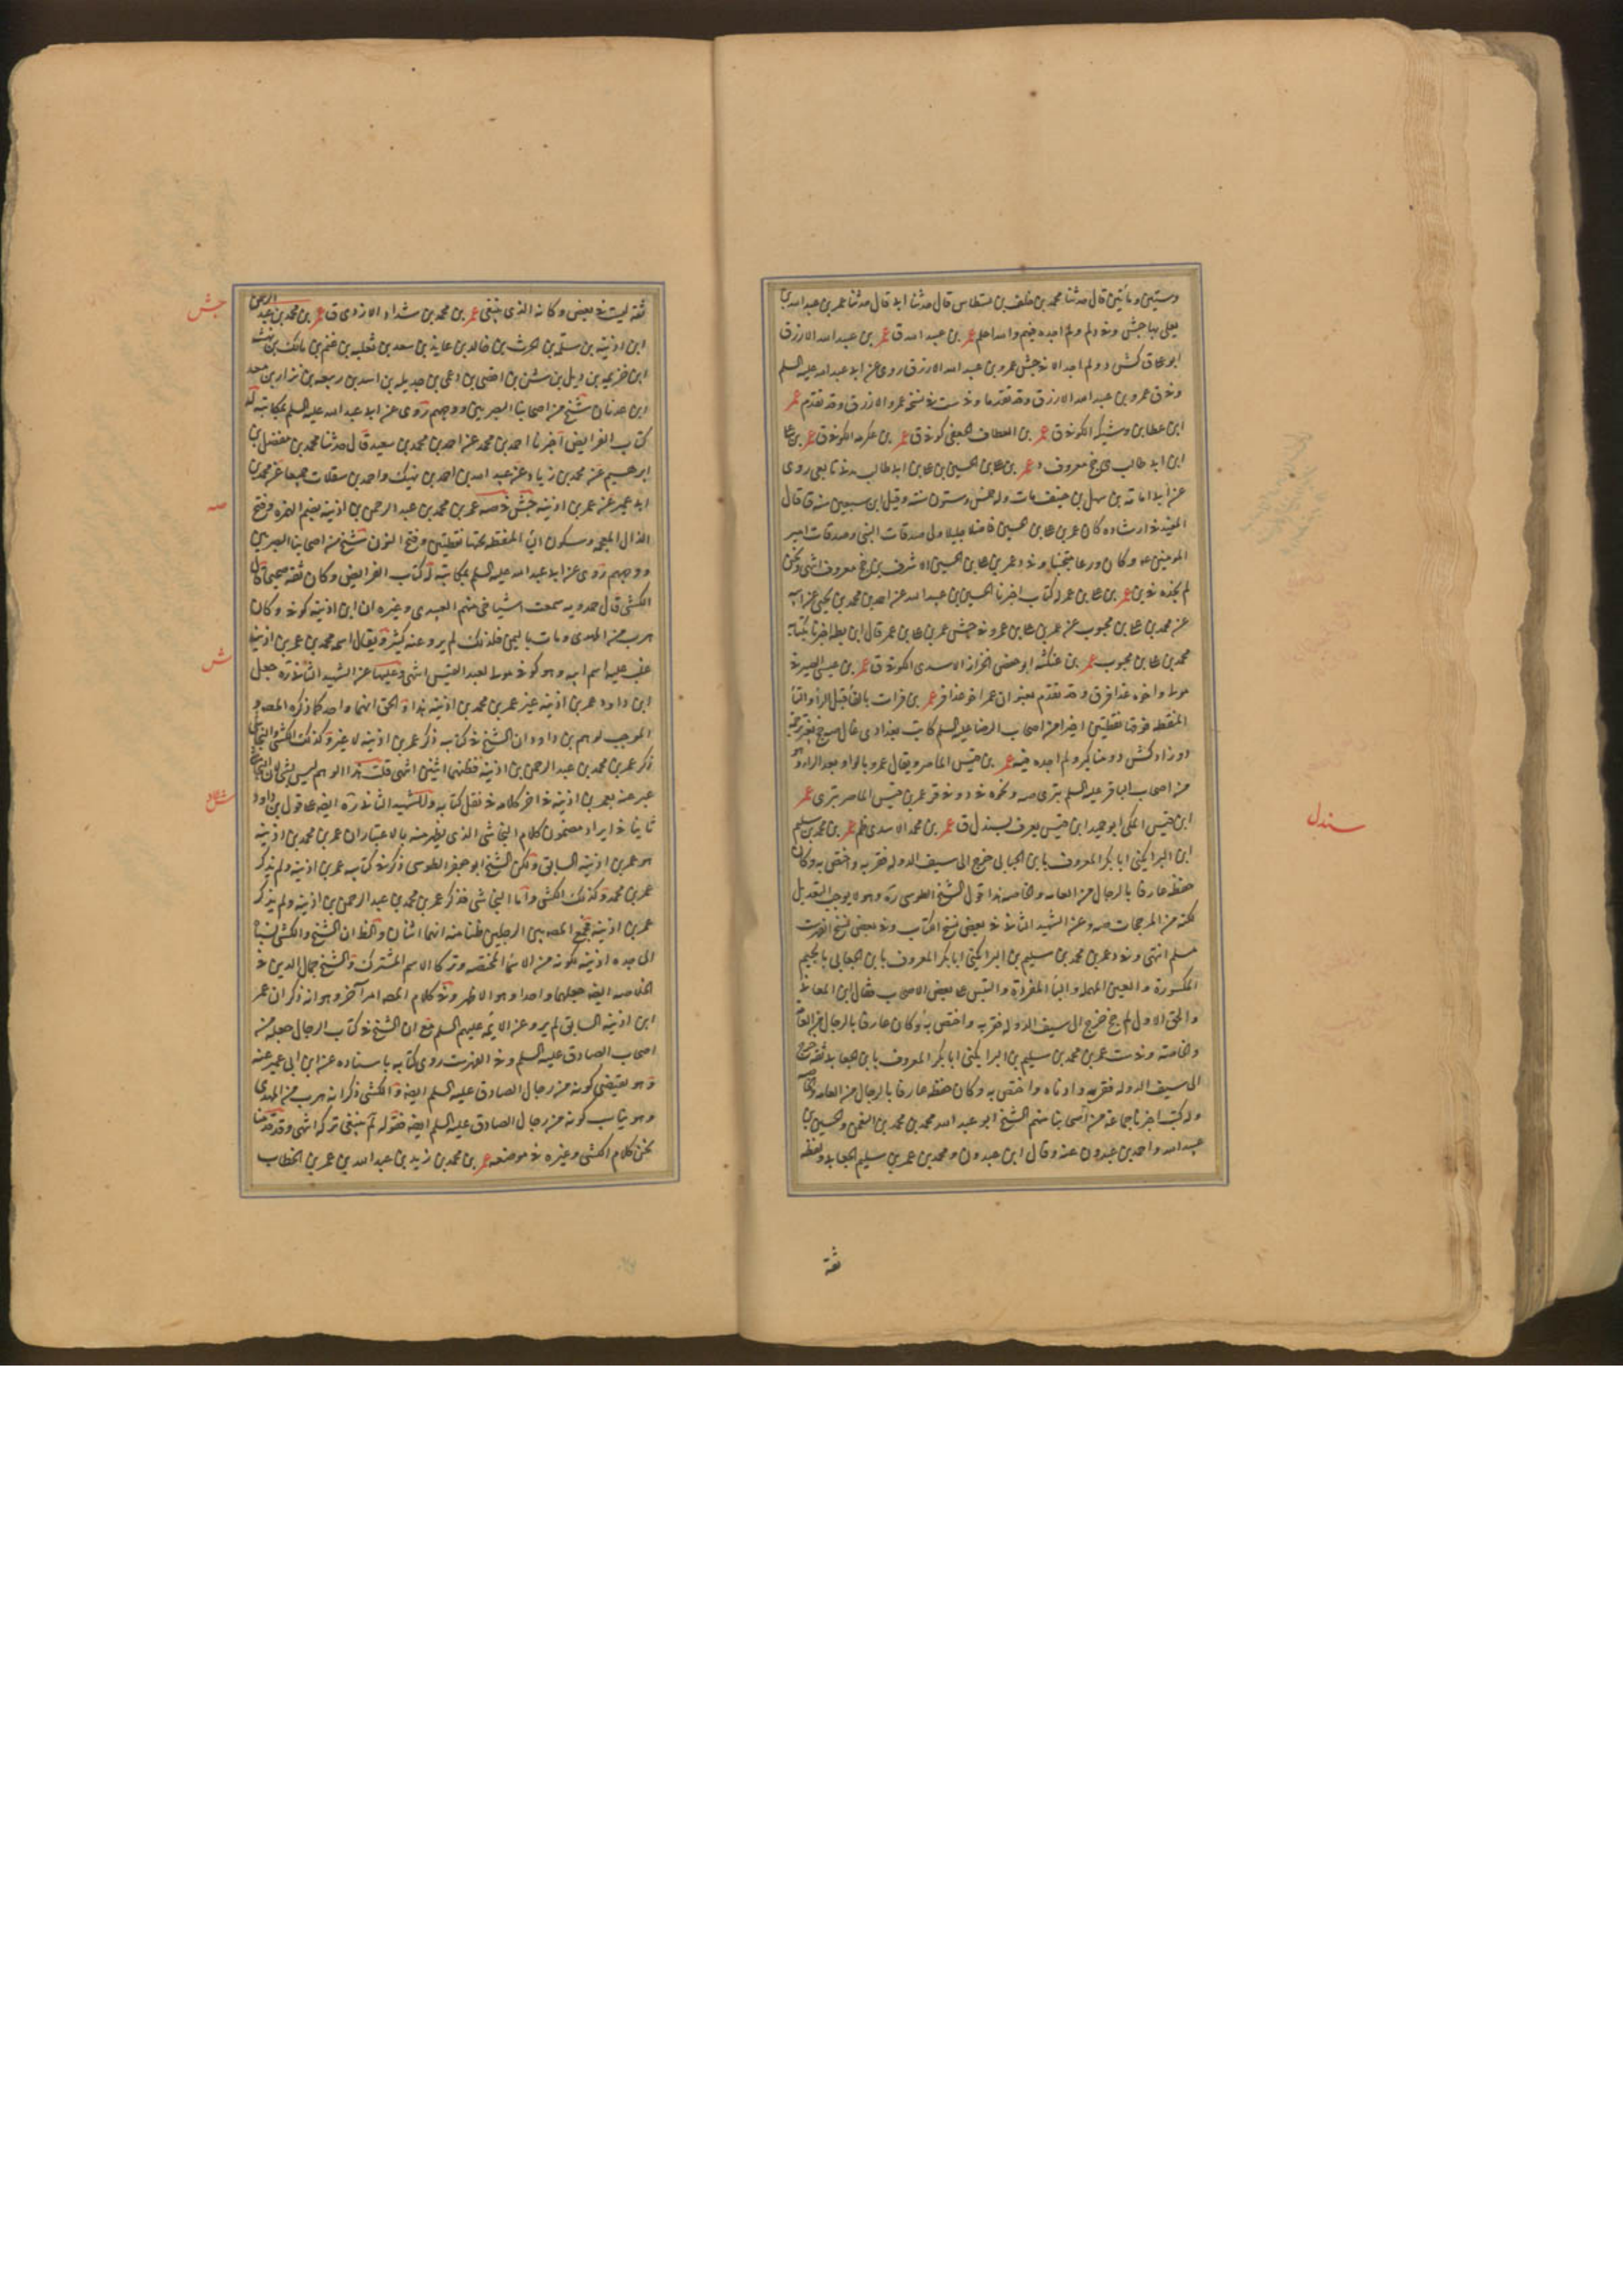 وستين ومأتين قال حدثنا محمد بن خلف بن قال حدثنا ابي قال حدثنا عمر بن عبد الله بن
يعلى بها جش وفي ولم اجده فيهم والله اعلم عمر بن عبد الله ق عمر بن عبد الله الازرق
ابو كش د ولم اجد الا في جش عمرو بن عبد الله الازرق روى عن ابي عبد الله عليه السلم
وفي ق عمرو بن عبد الله الازرق وقد تقدما وفي ست في نسخة عمرو الازرق وقد تقدم عمر
ابن عطا بن وشيكه الكوفي ق عمر بن العطاف الجعفي كوفي ق عمر بن عكرمه الكوفي ق عمر بن علي
ابن ابي طالب معروف د عمر بن علي بن الحسين بن علي بن ابي طالب مدني تابعي روى
عن ابي امامة بن سهل بن حنيف مات وله خمس وستون سنه وقيل ابن سبعين سنه ق قال
المفيد في ارشاده كان عمر بن علي بن الحسين فاضلا جليلا ولي صدقات النبي وصدقات امير
المومنين ع وكان ورعا سخيا وفي د عمر بن علي بن الحسين الاشرف معروف انتهى ونحن
لم نجده في ين عمر بن علي بن عمر له كتاب اخبرنا الحسين بن عبيد الله عن احمد بن محمد بن يحيى عن ابيه
عن محمد بن علي بن محبوب عن عمر بن علي بن عمر وفي جش عمر بن علي بن عمر قال ابن بطه اخبرنا بكتابه
محمد بن علي بن محبوب عمر بن عنكثه ابو حفص الخزاز الاسدي الكوفي ق عمر بن عيسى الصيرفي
مولى واخوه عذافر ق وقد تقدم بعنوان عمر اخو عذافر عمر بن فرات بالفا قبل الرا والتا
المنقطه فوقها نقطتين اخيرا من اصحاب الرضا عليه السلم كاتب بغدادي غال
د وزاد كش ذو مناكير ولم اجده فيه عمر بن قيس الماصر ويقال عمرو بالواو بعد الراء
من اصحاب الباقر عليه السلم بتري صه ونحوه في د وفي قر عمر بن قيس الماصر بتري عمر
ابن قيس المكي ابو حميد ابن قيس يعرف بسندل ق عمر بن محمد الاسدي ظم عمر بن محمد بن سليم
ابن البرا يكنى ابا بكر المعروف بابن الجعابي خرج الى سيف الدوله فقربه واختص به وكان
حفظه عارفا بالرجال من العامه والخاصه هذا قول الشيخ الطوسي ره وهو لا يوجب التعديل
لكنه من المرجحات صه وعن الشهيد الثاني في بعض نسخ الكتاب وفي بعض نسخ الفهرست
مسلم انتهى وفي د عمر بن محمد بن سليم بن البرا يكنى ابا بكر المعروف بابن الجعابي بالجيم
المكسورة والعين المهمله والبا المفردة والتبس على بعض الاصحاب فقال ابن المعافا
والحق الاول لم جخ خرج الى سيف الدوله فقربه واختص به وكان عارفا بالرجال من العامه
والخاصه وفي ست عمر بن محمد بن سليم بن البرا يكنى ابا بكر المعروف بابن الجعابي ثقه خرج
الى سيف الدوله فقربه وادناه واختص به وكان حفظه عارفا بالرجال من العامه والخاصه
وله كتب اخبرنا جماعة من اصحابنا منهم الشيخ ابو عبد الله محمد بن محمد بن النعمن والحسين بن
عبيد الله واحمد بن عبدون عنه وقال ابن عبدون ومحمد بن عمر بن سليم الجعابي ولفظه
سندل
ثقة
ثقه ليست في بعض وكانه الذي ينبغي عمر بن محمد بن شداد الازدي ق عمر بن محمد بن عبد الرحمن
ابن اذينه بن سلمة بن الحرث بن خالد بن عايذ بن سعد بن ثعلبه بن غنم بن مالك بن بهثه
ابن خزيمه بن ديل بن شن بن افصى بن دعمى بن جديله بن اسد بن ربيعه بن نزار بن معد
ابن عدنان شيخ من اصحابنا البصريين ووجههم روى عن ابي عبد الله عليه السلم بمكاتبه له
كتاب الفرايض اخبرنا احمد بن محمد عن احمد بن محمد بن سعيد قال حدثنا محمد بن مفضل بن
ابرهيم عن محمد بن زياد وعن عبد الله بن احمد بن نهيك واحمد بن سقلاب جميعا عن محمد بن
ابي عمير عن عمر بن اذينه جش في صه عمر بن محمد بن عبد الرحمن بن اذينه بضم الهمزه وفتح
الذال المعجمه وسكون اليا المنقطه تحتها نقطتين وفتح النون شيخ من اصحابنا البصريين
ووجههم روى عن ابي عبد الله عليه السلم بمكاتبه له كتاب الفرايض وكان ثقه صحيحا قال
الكشي قال حمدويه سمعت اشياخي منهم العبيدي وغيره ان ابن اذينه كوفي وكان
هرب من المهدي ومات باليمن فلذلك لم يرو عنه كثير ويقال اسمه محمد بن عمر بن اذينه
غلب عليه اسم ابيه وهو كوفي مولى لعبد القيس انتهى وعليها عن الشهيد الثاني ره جعل
ابن داود عمر بن اذينه غير عمر بن محمد بن اذينه هذا والحق انهما واحد كما ذكره المصه و
الموجب لوهم بن داود ان الشيخ في كتابه ذكر عمر بن اذينه لا غير وكذلك الكشي والنجاشي
ذكر عمر بن محمد بن عبد الرحمن بن اذينه فظنهما اثنين انتهى قلت هذا الوهم ليس بشي لان النجاشي
عبر عنه بعمر بن اذينه في اخر كلامه في نقل كتابه وللشهيد الثاني ره ايضه على قول بن داود
ثانيا في ايراد مضمون كلام النجاشي الذي يظهر منه بالاعتبار ان عمر بن محمد بن اذينه
هو عمر بن اذينه السابق ولكن الشيخ ابو جعفر الطوسي ذكر في كتابه عمر بن اذينه ولم يذكر
عمر بن محمد وكذلك الكشي واما النجاشي فذكر عمر بن محمد بن عبد الرحمن بن اذينه ولم يذكر
عمر بن اذينه فجمع المصه بين الرجلين ظنا منه انهما اثنان والظ ان الشيخ والكشي نسباه
الى جده اذينه لكونه من الاسما المختصه وتركا الاسم المشترك والشيخ جمال الدين في
الخلاصه ايضه جعلهما واحدا وهو الاظهر وفي كلام المصه امر آخر وهو انه ذكر ان عمر
ابن اذينه السابق لم يرو عن الائمه عليهم السلم مع ان الشيخ في كتاب الرجال جعله من
اصحاب الصادق عليه السلم وفي الفهرست روى كتابه باسناده عن ابن ابي عمير عنه
وهو يقتضي كونه من رجال الصادق عليه السلم ايضه والكشي ذكر انه هرب من المهدي
وهو يناسب كونه من رجال الصادق عليه السلم ايضه فقوله لم ينبغي تركه انتهى وقد قدمنا
نحن كلام الكشي وغيره في موضعه عمر بن محمد بن زيد بن عبد الله بن عمر بن الخطاب
جش
صه
ش